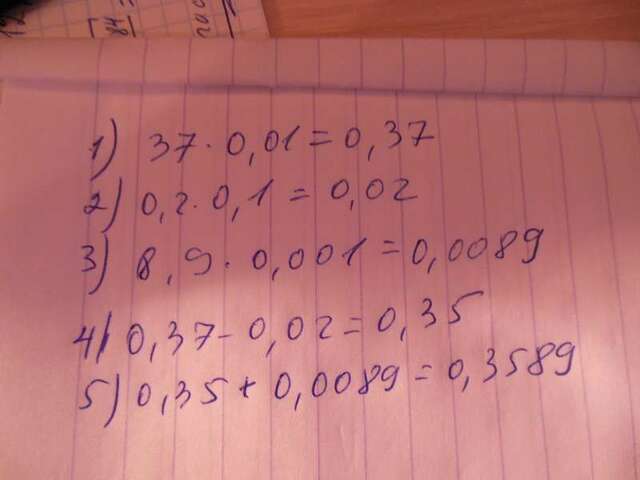 1) 37 · 0,01 = 0,37
2) 0,2 · 0,1 = 0,02
3) 8,9 · 0,001 = 0,0089
4) 0,37 - 0,02 = 0,35
5) 0,35 + 0,0089 = 0,3589